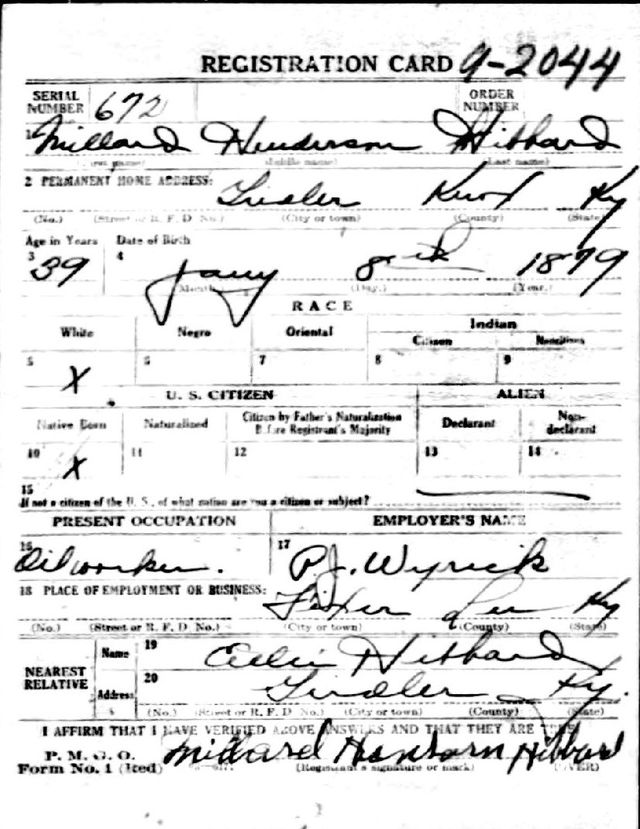 REGISTRATION CARD 9-2044
SERIAL NUMBER 672 ORDER NUMBER
1 Millard Henderson Hibbard
(First name) (Middle name) (Last name)
2 PERMANENT HOME ADDRESS: Knox Ky
(No.) (Street or R. F. D. No.) (City or town) (County) (State)
Age in Years Date of Birth
3 39 4 Jany 8 1879
(Month) (Day.) (Year.)
RACE
White Negro Oriental Indian
Citizen Noncitizen
5 X 6 7 8 9
U. S. CITIZEN ALIEN
Native Born Naturalized Citizen by Father's Naturalization Before Registrant's Majority Declarant Non-declarant
10 X 11 12 13 14
15
If not a citizen of the U. S., of what nation are you a citizen or subject?
PRESENT OCCUPATION EMPLOYER'S NAME
16 Oil worker. 17 P.J. Wyrick
18 PLACE OF EMPLOYMENT OR BUSINESS:
Lee Ky
(No.) (Street or R. F. D. No.) (City or town) (County) (State)
NEAREST RELATIVE Name 19 Hibbard
Address 20 Ky.
(No.) (Street or R. F. D. No.) (City or town) (County) (State)
I AFFIRM THAT I HAVE VERIFIED ABOVE ANSWERS AND THAT THEY ARE TRUE
P. M. G. O.
Form No. 1 (Red) Millard Hibbard
(Registrant's signature or mark) (OVER)